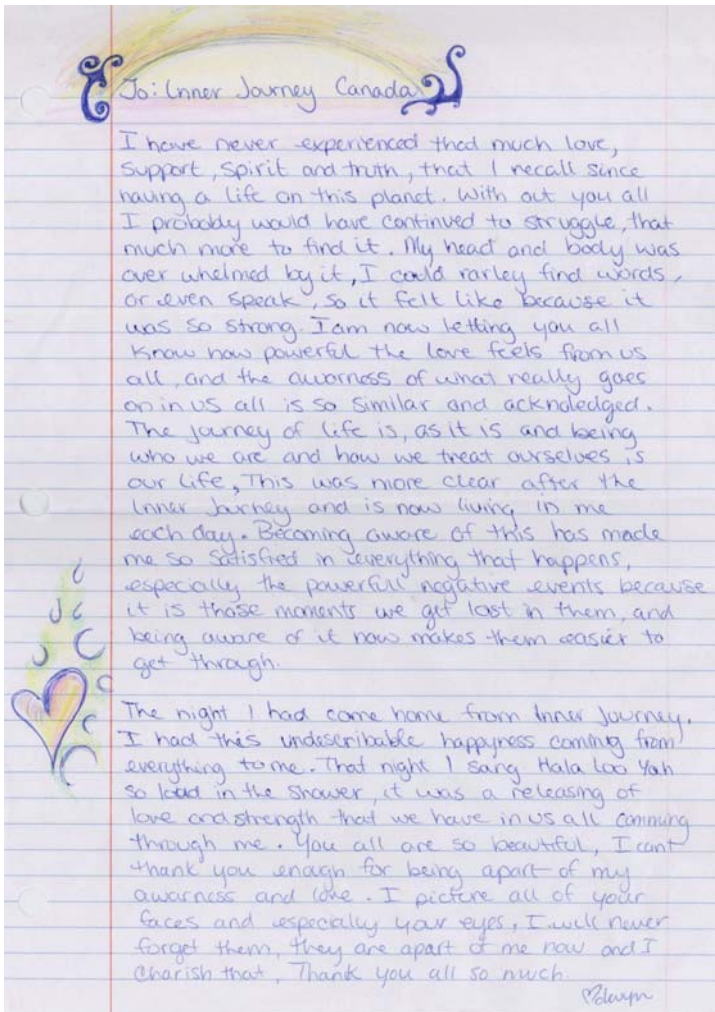 To: Inner Journey Canada
I have never experienced thad much love,
Support, Spirit and truth, that I recall since
having a life on this planet. With out you all
I probobly would have continued to struggle, that
much more to find it. My head and body was
over whelmed by it, I could rarley find words,
or even speak, so it felt like because it
was so strong. I am now letting you all
Know how powerful the love feels from us
all, and the aworness of what really goes
on in us all is so similar and acknoledged.
The journey of life is, as it is and being
who we are and how we treat ourselves is
our life, This was more clear after the
Inner Journey and is now living in me
each day. Becoming aware of this has made
me so satisfied in everything that happens,
especially the powerfull negative events because
it is those moments we get lost in them, and
being aware of it now makes them easier to
get through.
The night I had come home from Inner Journey.
I had this undescribable happyness coming from
everything to me. That night I sang Hala Loo Yah
so load in the shower, it was a releasing of
love and strength that we have in us all comming
through me. You all are so beautiful, I cant
thank you enough for being apart of my
awarness and love. I picture all of your
faces and especially your eyes, I will never
forget them, they are apart of me now and I
Charish that, Thank you all so much.